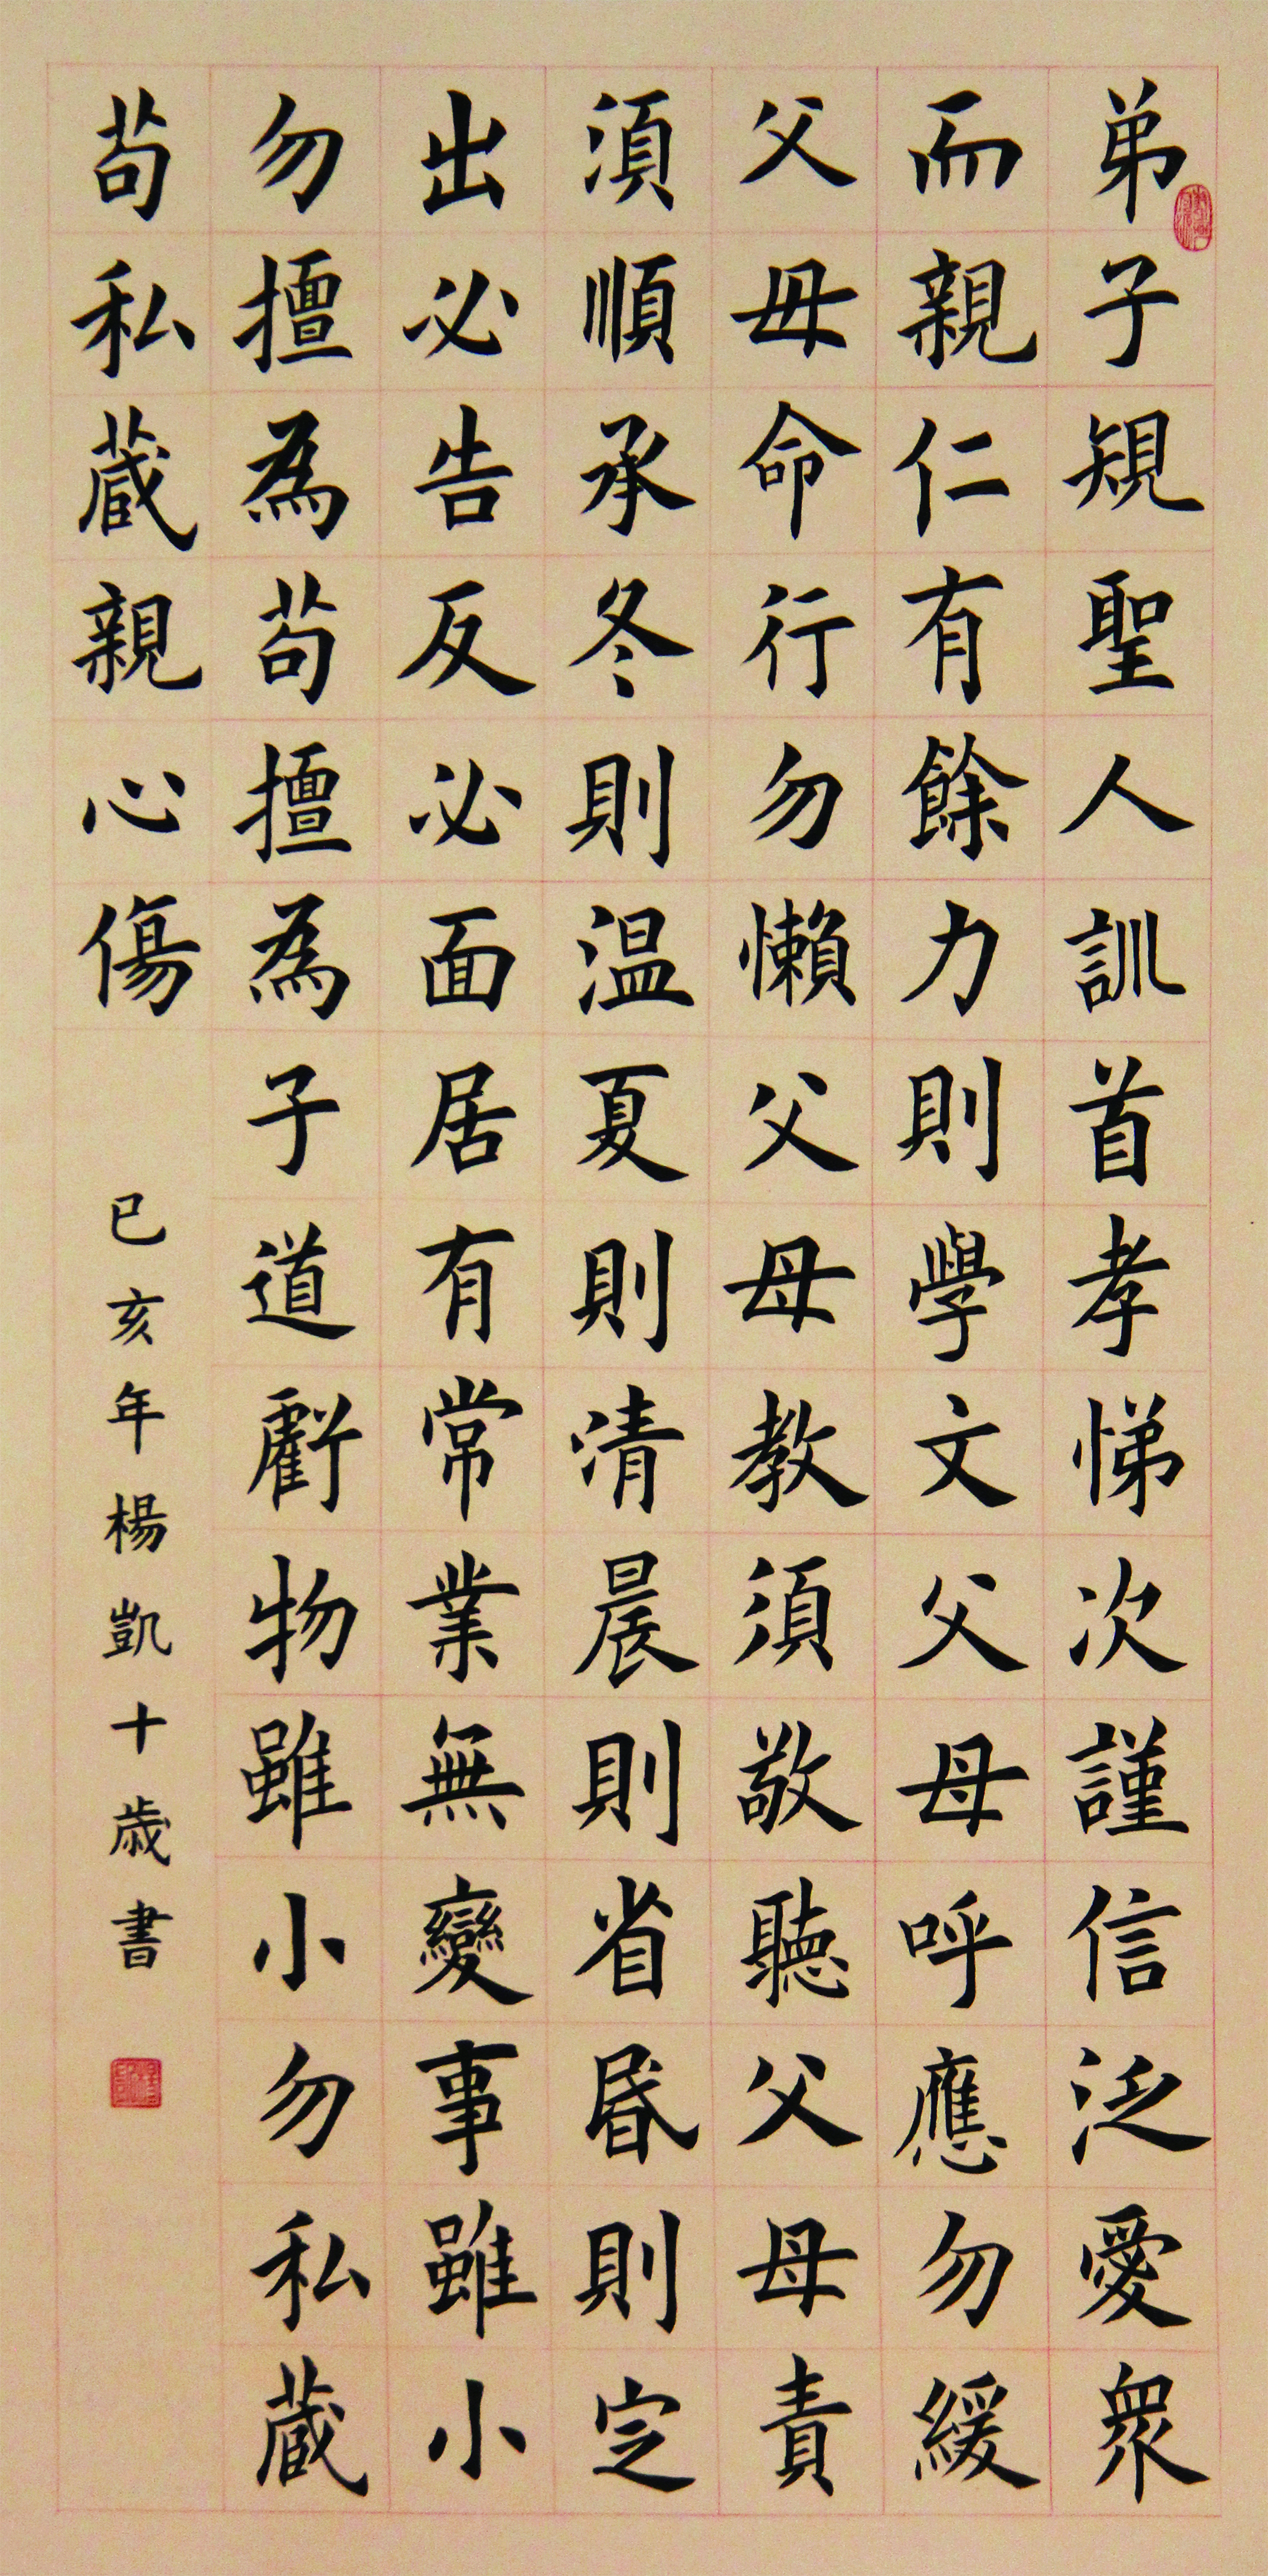 弟子規聖人訓首孝悌次謹信泛愛衆
而親仁有餘力則學文父母呼應勿緩
父母命行勿懶父母教須敬聽父母責
須順承冬則温夏則凊晨則省昬則定
出必告反必面居有常業無變事雖小
勿擅為苟擅為子道虧物雖小勿私蔵
苟私蔵親心傷
已亥年楊凱十歲書